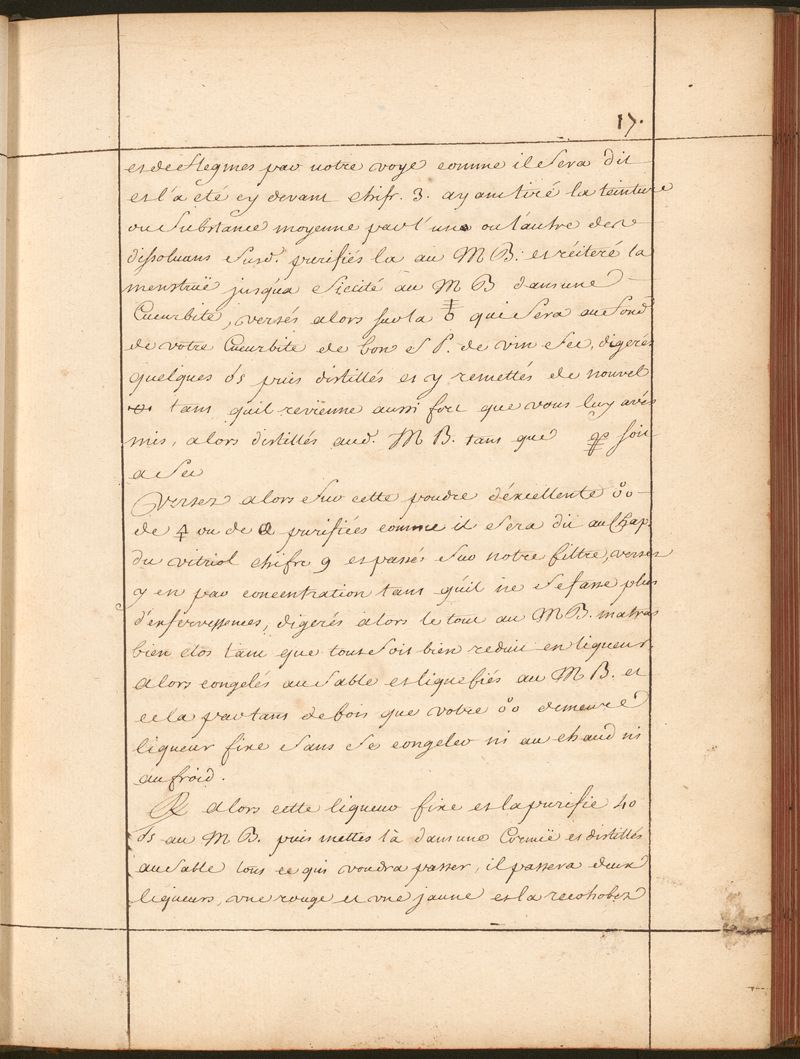 17.
et de flegmes par notre voye comme il sera dit
et l'a eté cy devant chifr. 3. ayant tiré la teinture
ou substance moyenne par l'une ou l'autre des
dissolvans susd. purifiés la au M B. et réiteré la
menstruë jusqu'a siccité au M B dans une
Cucurbite, versés alors sur la qui sera au fond
de votre Cucurbite de bon S P. de vin sec, digerés
quelques puis distillés et y remettés de nouvel
tant quil revienne aussi fort que vous luy avés
mis, alors distillés aud. M B. tant que soit
a sec
Versez alors sur cette poudre d'excellente
de ou de purifiées comme il sera dit au Chap.
du vitriol chifre 9 et passés sur notre filtre, versez
y en par concentration tant quil ne se fasse plus
d'enfervessences, digerés alors le tout au M B. matras
bien clos tant que tout soit bien reduit en liqueur,
alors congelés au sable et liquefiés au M B. et
cela par tant de fois que votre demeure
liqueur fixe sans se congeler ni au chaud ni
au froid.
alors cette liqueur fixe et la purifie 40
au M B. puis mettes là dans une Cornuë et distillés
au sable tous ce qui voudra passer, il passera deux
liqueurs, une rouge et une jaune et la recohobez